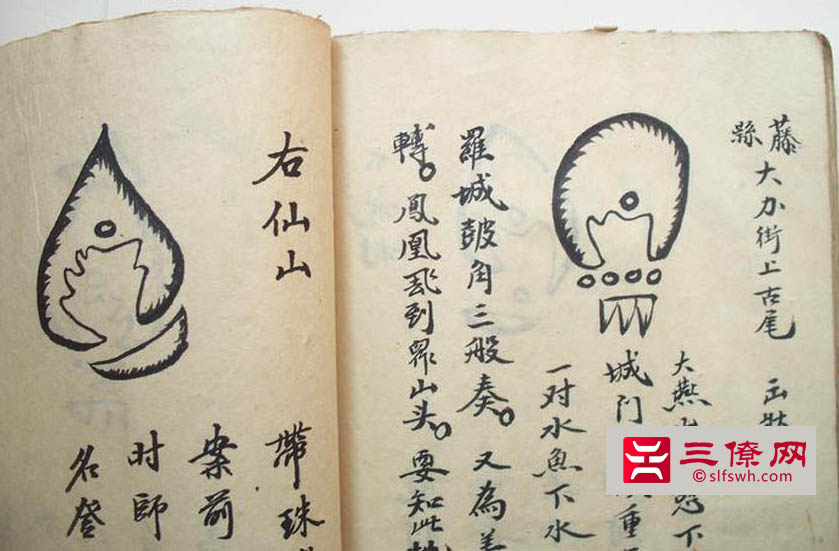 藤縣大力街上古尾
大燕
城門
一对水魚下水
羅城鼓角三般奏。又為
轉。鳳凰飛到界山头。要知此
右仙山
帶珠
案前
时師
名登
三僚网
slfswh.com